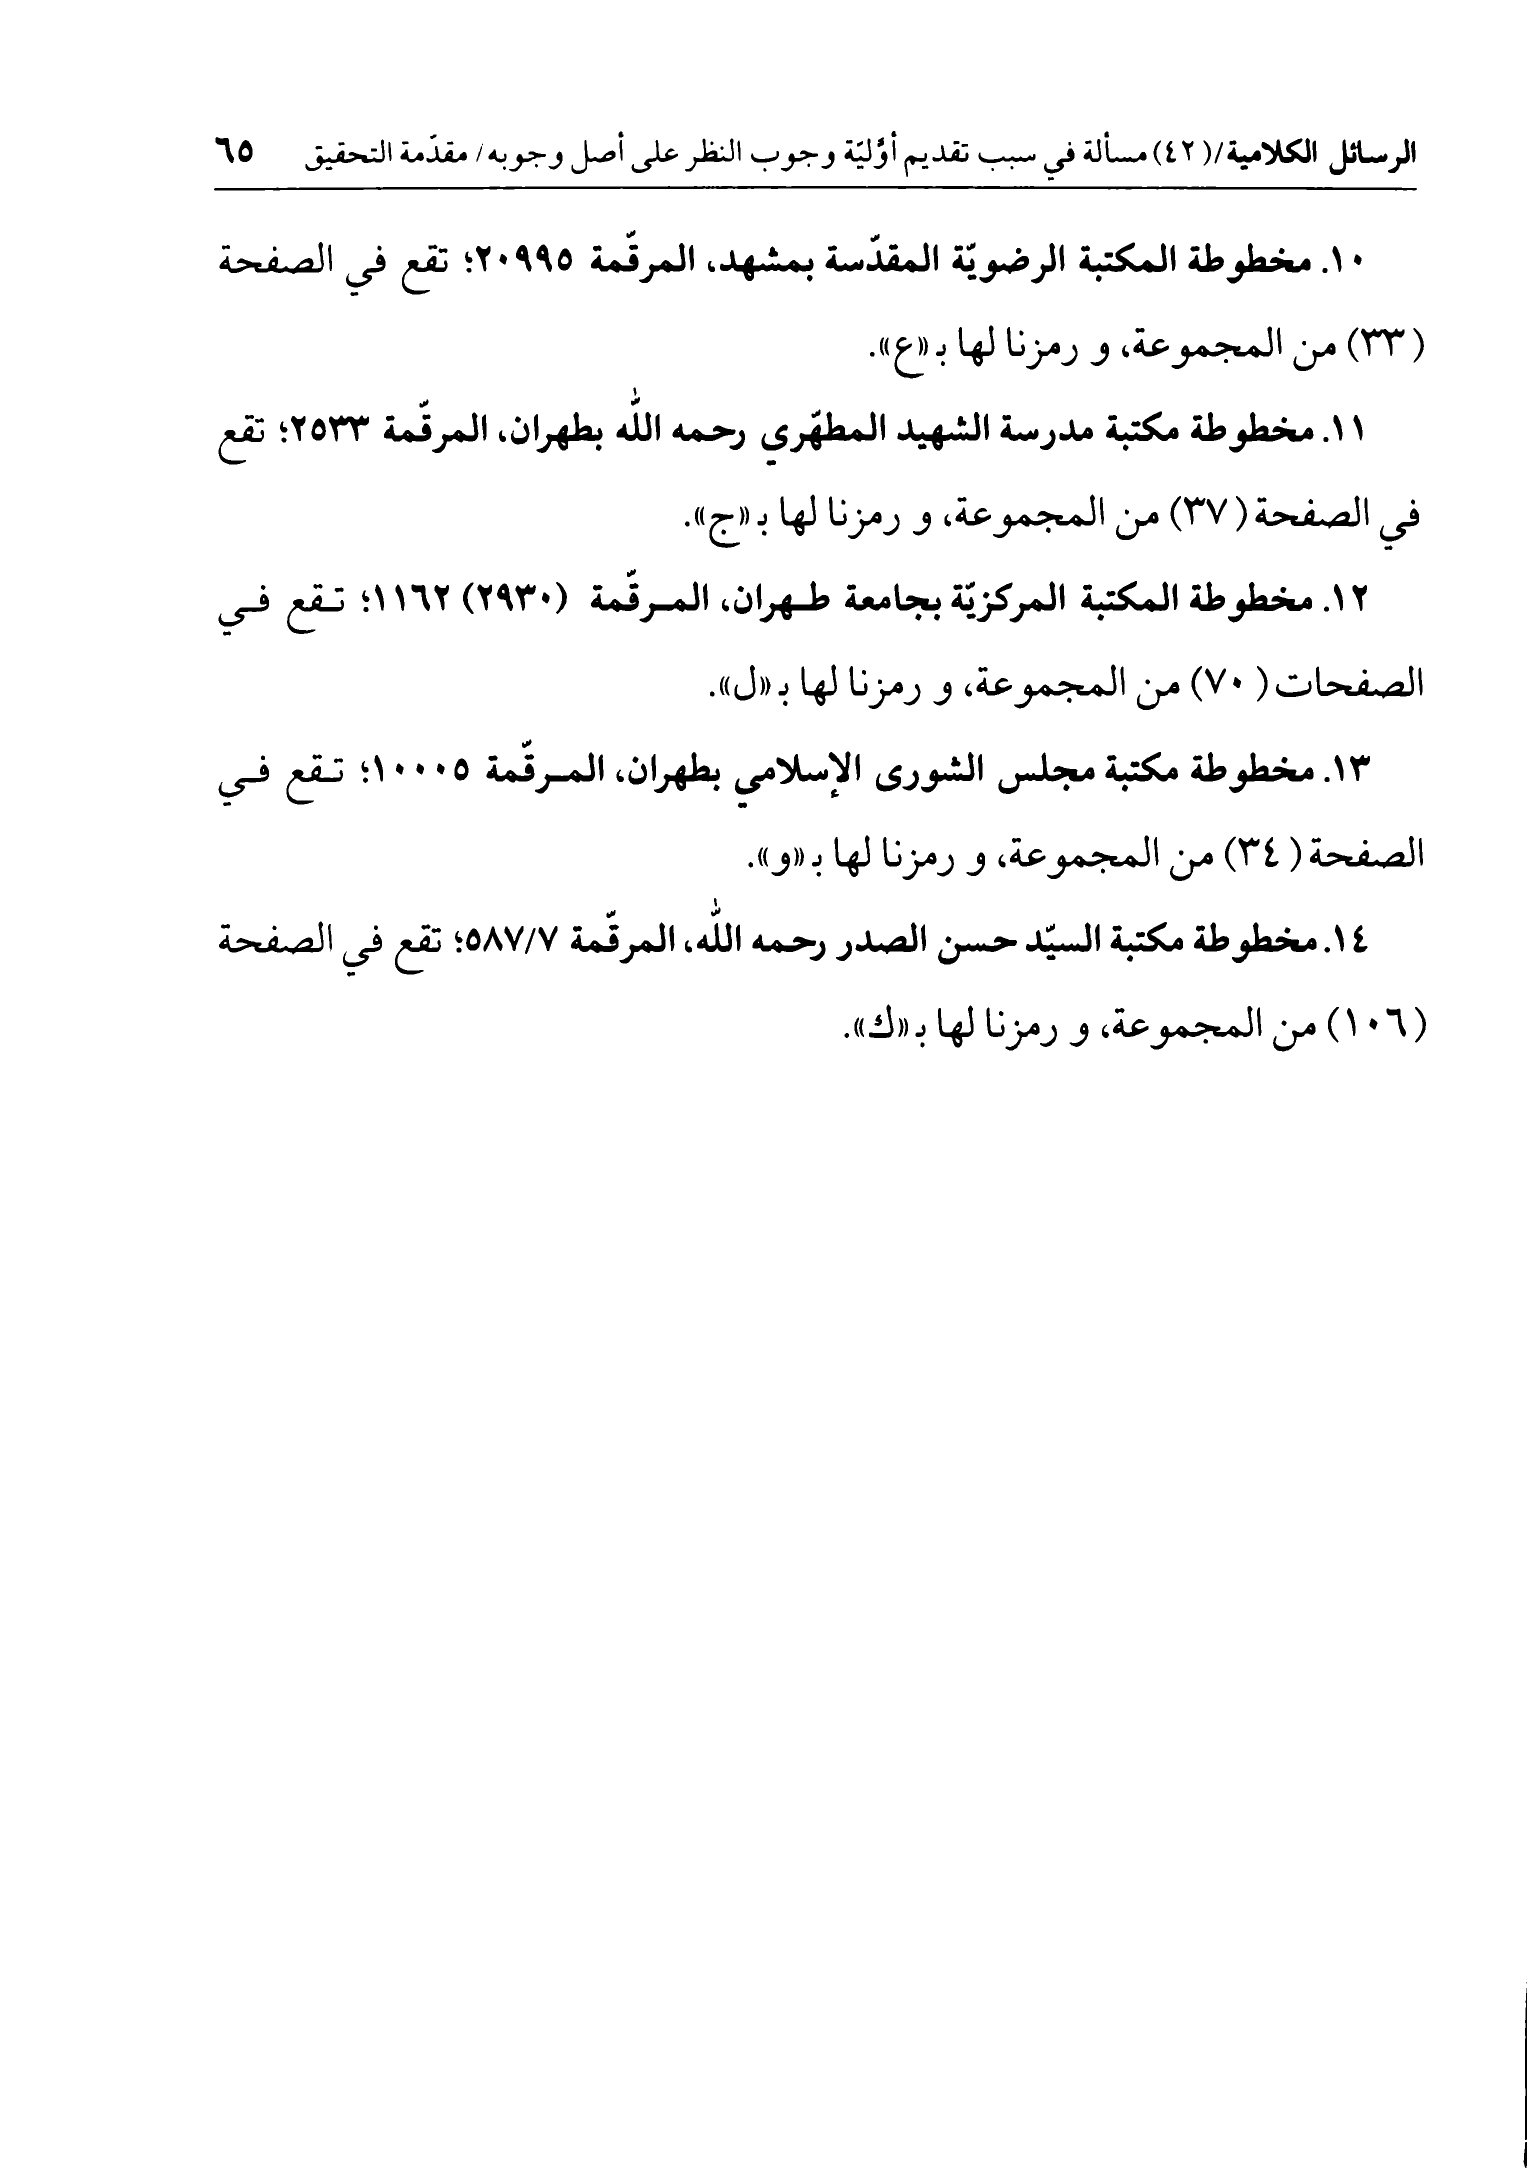 الرسائل الكلامية/(٤٢) مسألة في سبب تقديم أوّليّة وجوب النظر على أصل وجوبه/ مقدّمة التحقيق ٦٥
١٠. مخطوطة المكتبة الرضويّة المقدّسة بمشهد، المرقّمة ٢٠٩٩٥؛ تقع في الصفحة
(٣٣) من المجموعة، و رمزنا لها بـ«ع».
١١. مخطوطة مكتبة مدرسة الشهيد المطهّري رحمه اللّٰه بطهران، المرقّمة ٢٥٣٣؛ تقع
في الصفحة (٣٧) من المجموعة، و رمزنا لها بـ«ج».
١٢. مخطوطة المكتبة المركزيّة بجامعة طـهران، المـرقّمة (٢٩٣٠) ١١٦٢؛ تـقع فـي
الصفحات (٧٠) من المجموعة، و رمزنا لها بـ«ل».
١٣. مخطوطة مكتبة مجلس الشورى الإسلامي بطهران، المـرقّمة ١٠٠٠٥؛ تـقع فـي
الصفحة (٣٤) من المجموعة، و رمزنا لها بـ«و».
١٤. مخطوطة مكتبة السيّد حسن الصدر رحمه اللّٰه، المرقّمة ٥٨٧/٧؛ تقع في الصفحة
(١٠٦) من المجموعة، و رمزنا لها بـ«ك».